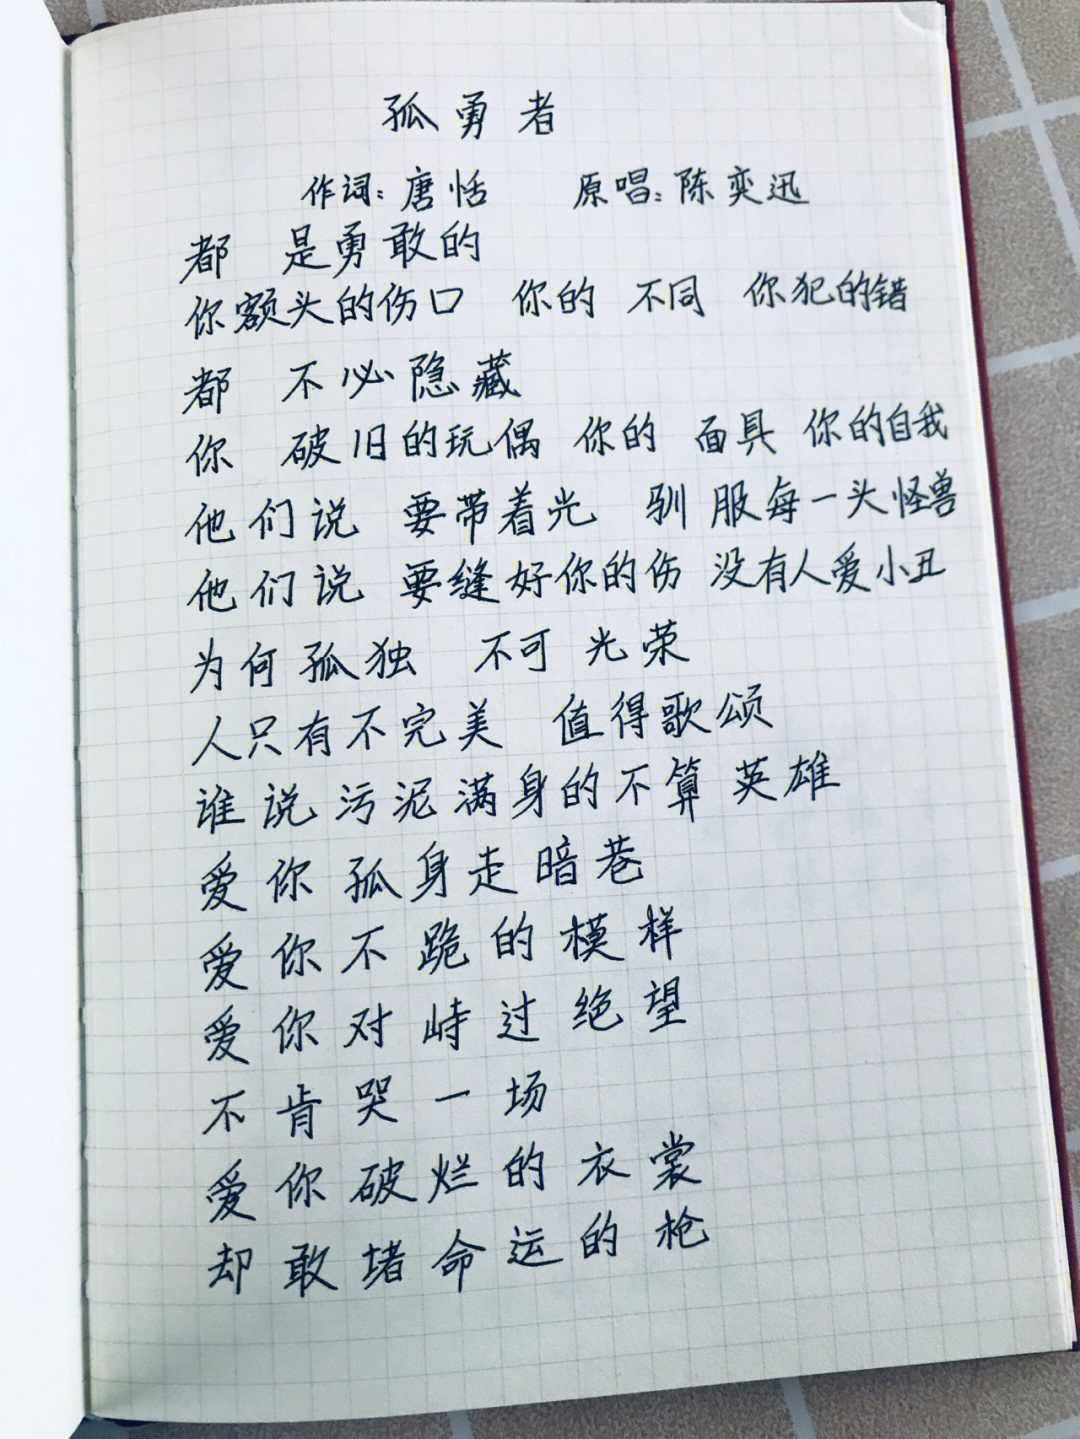 孤勇者
作词：唐恬 原唱：陈奕迅
都 是勇敢的
你额头的伤口 你的 不同 你犯的错
都 不必隐藏
你 破旧的玩偶 你的 面具 你的自我
他们说 要带着光 驯服每一头怪兽
他们说 要缝好你的伤 没有人爱小丑
为何孤独 不可 光荣
人只有不完美 值得歌颂
谁说污泥满身的不算英雄
爱你孤身走暗巷
爱你不跪的模样
爱你对峙过绝望
不肯哭一场
爱你破烂的衣裳
却敢堵命运的枪